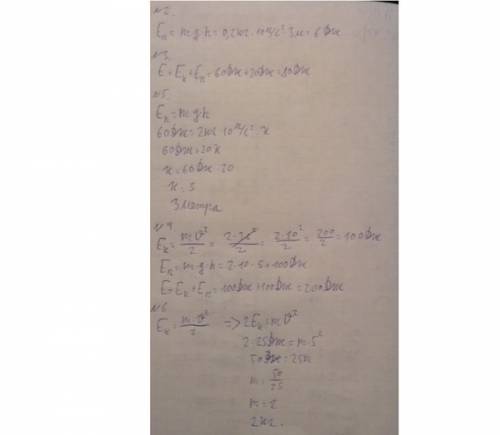 №2.
Eп = m·g·h = 0,2кг·10м/с²·3м = 6Дж
№3.
E = Eк + Eп = 60Дж + 20Дж = 80Дж
№5.
Eп = m·g·h
60Дж = 2кг·10м/с²·x
60Дж = 20x
x = 60Дж : 20
x = 3
3 метра
№4
Eк = m·υ²/2 = = 2·10²/2 = 200/2 = 100Дж
Eп = m·g·h = 2·10·5 = 100Дж
E = Eк + Eп = 100Дж + 100Дж = 200Дж
№6
Eк = m·υ²/2 => 2Eк = mυ²
2·25Дж = m·5²
50Дж = 25m
m = 50/25
m = 2
2кг.